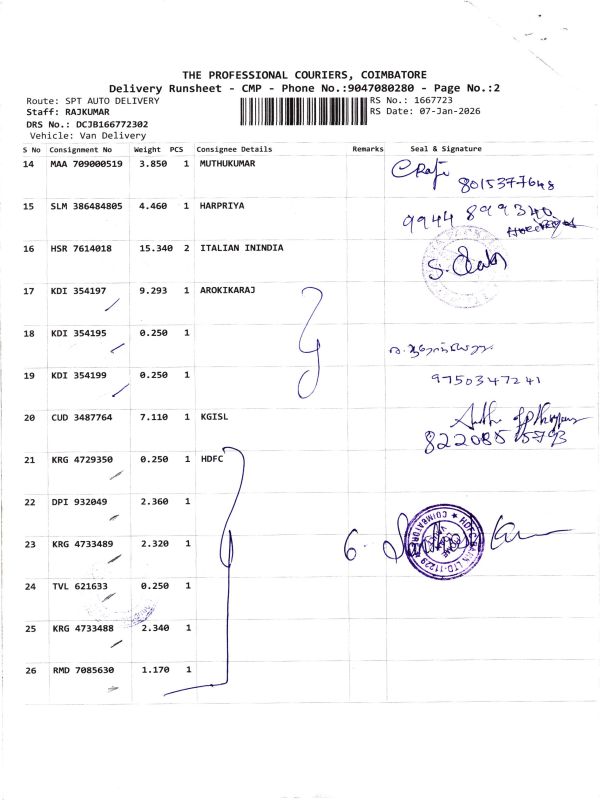 THE PROFESSIONAL COURIERS, COIMBATORE
Delivery Runsheet - CMP - Phone No.:9047080280 - Page No.:2
Route: SPT AUTO DELIVERY RS No.: 1667723
Staff: RAJKUMAR RS Date: 07-Jan-2026
DRS No.: DCJB166772302
Vehicle: Van Delivery
S No Consignment No Weight PCS Consignee Details Remarks Seal & Signature
14 MAA 709000519 3.850 1 MUTHUKUMAR
8015377648
15 SLM 386484805 4.460 1 HARPRIYA 9944 899340
16 HSR 7614018 15.340 2 ITALIAN ININDIA
17 KDI 354197 9.293 1 AROKIKARAJ
18 KDI 354195 0.250 1
19 KDI 354199 0.250 1 9750347241
20 CUD 3487764 7.110 1 KGISL
21 KRG 4729350 0.250 1 HDFC
22 DPI 932049 2.360 1
23 KRG 4733489 2.320 1
24 TVL 621633 0.250 1
25 KRG 4733488 2.340 1
26 RMD 7085630 1.170 1